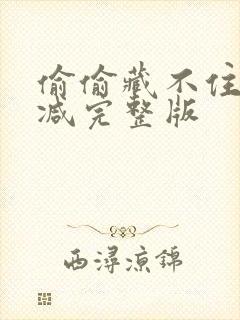 偷偷藏不住
减完整版
西浔凉锦